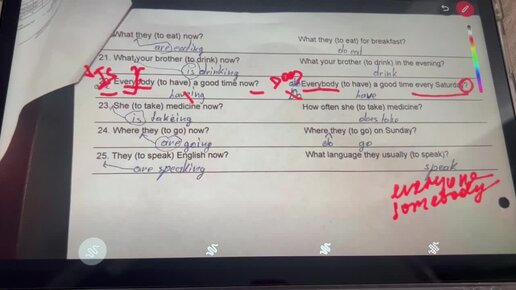 What they (to eat) now? What they (to eat) for breakfast?
are eating do eat
21. What your brother (to drink) now? What your brother (to drink) in the evening?
is drinking drink
Is Everybody (to have) a good time now? Everybody (to have) a good time every Saturday?
having have
23. She (to take) medicine now? How often she (to take) medicine?
is takeing does take
24. Where they (to go) now? Where they (to go) on Sunday?
are going do go
25. They (to speak) English now? What language they usually (to speak)?
are speaking speak
everyone
somebody